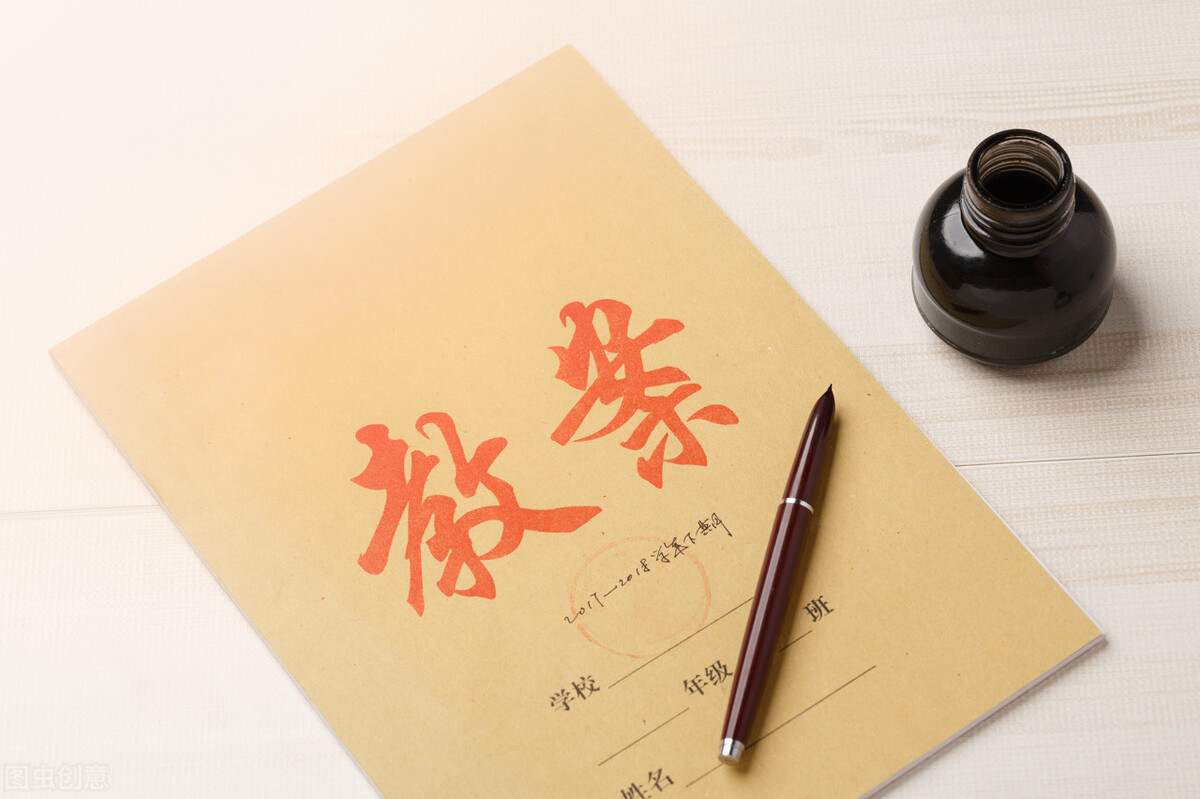 教案
2017—2018学年下期
学校
年级 班
姓名
图虫创意